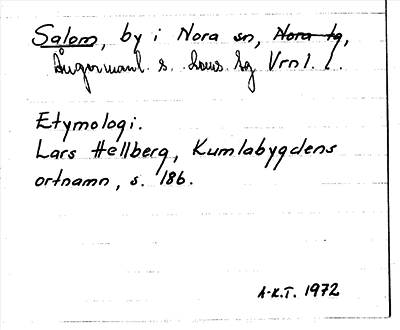 Salom, by i Nora sn, Nora tg,
Ångermanl. s. doms. tg Vrnl.
Etymologi.
Lars Hellberg, Kumlabygdens
ortnamn, s. 186.
A-K.T. 1972